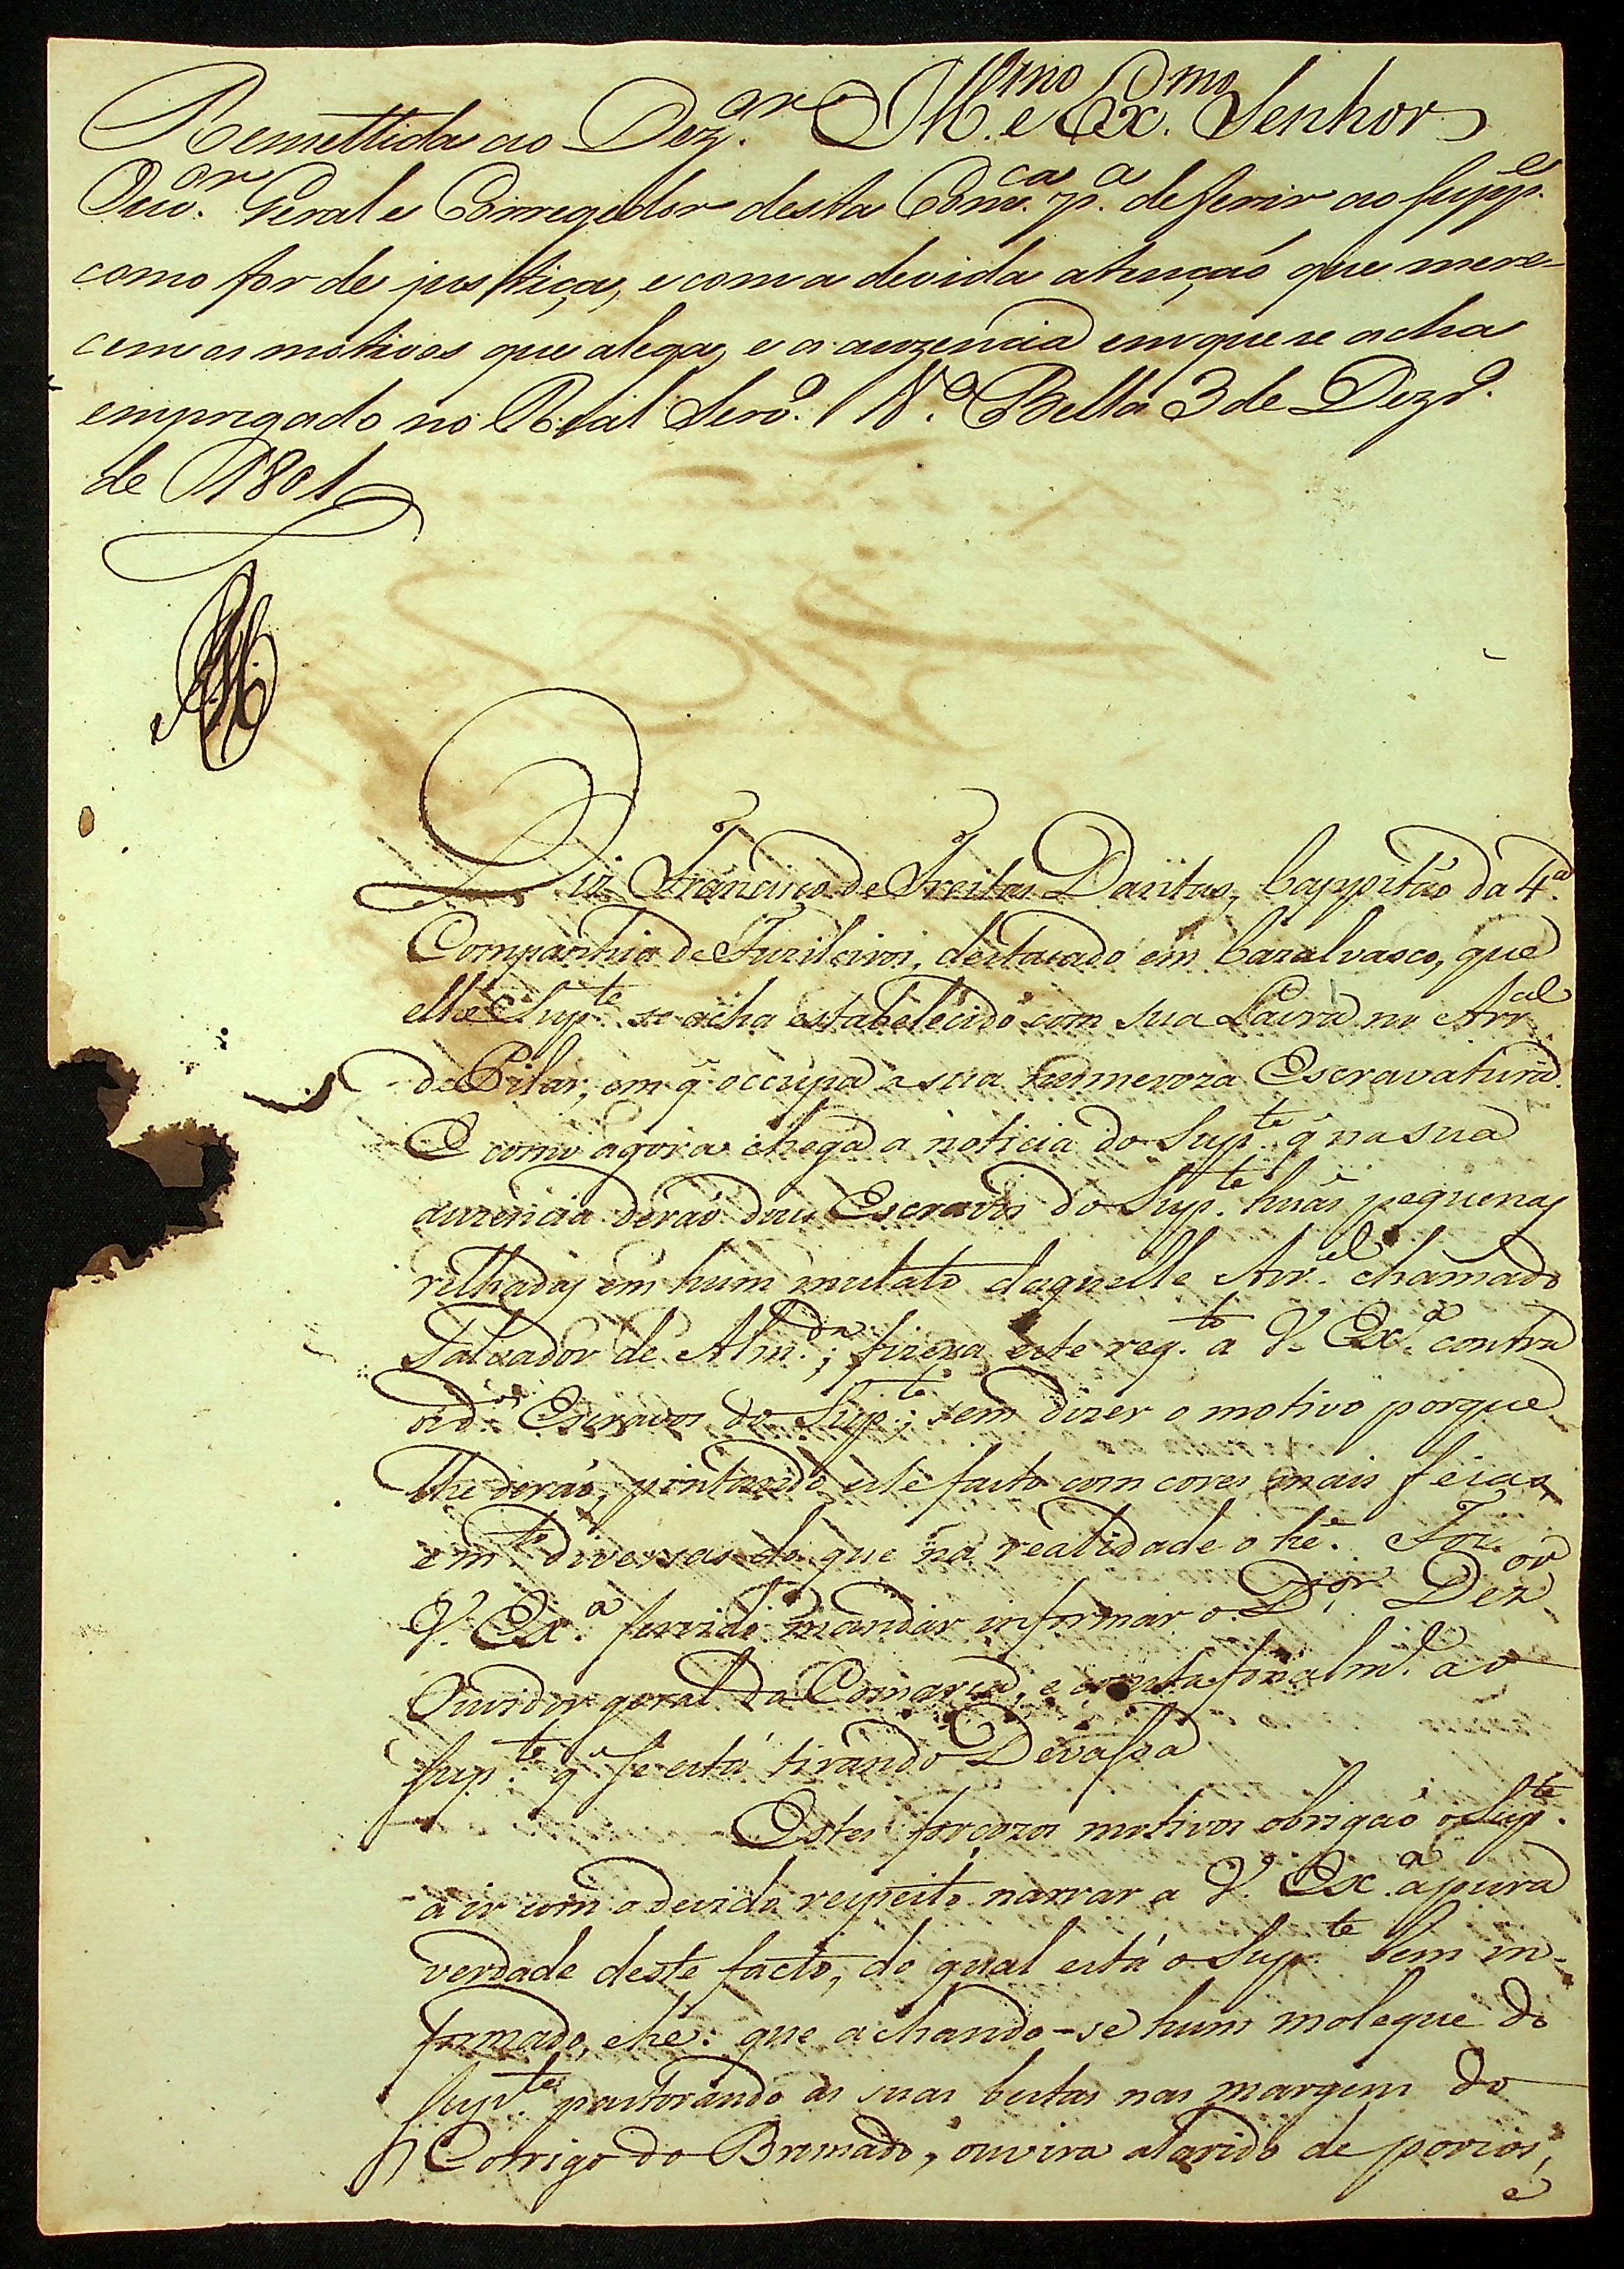 Remettida ao Dez.or Ill.mo e Ex.mo Senhor
Ouv.or Geral e Corregedor desta Com.ca p.a deferir ao supp.e
como for de justiça, e com a devida atençaõ que mere-
cem os motivos que alega, e a auzencia em que se acha
empregado no Real Serv.o V.a Bella 3 de Dezr.o
de 1801
Diz Francisco de Freitas Dantas, Cappitão da 4.a
Companhia de Fuzileiros, destacado em Cazalvasco, que
elle Sup.te se acha estabelecido com sua Lavra no Arr.al
do Pilar, em q̃ occupa a sua numeroza Escravatura.
E como agora chega a noticia do Sup.te q̃ na sua
auzencia deraõ dous Escravos do Sup.te huãs pequenas
relhadas em hum mulato daquelle Arr.al chamado
Salvador de Alm.da; fizera este req.to a V. Ex.a contra
os d.os Escravos do Sup.te; sem dizer o motivo porque
lhe deraõ, pintando este facto com cores mais feias,
e m.to diversas do que na realidade o hé. Foi
V. Ex.a servido mandar informar o D.or Dez.or
Ouvidor geral da Comarca, e consta finalm.e ao
sup.te q̃ se está tirando Devassa
Estes forçozos motivos obrigaõ o Sup.te
a ir com o devido respeito narrar a V. Ex.a a pura
verdade deste facto, do qual está o Sup.te bem in-
formado, e hé: que achando-se hum moleque do
sup.te pastorando as suas bestas nas margens do
Corrigo do Brumado, ouvira alarido de porcos,
e